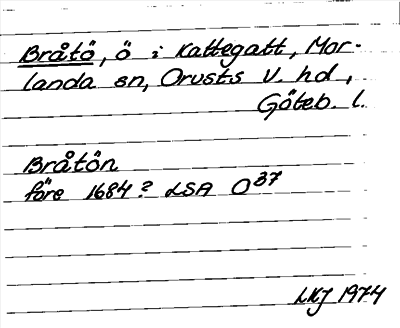 Bråtö, ö i Kattegatt, Mor-
landa sn, Orusts V. hd,
Göteb. l.
Bråtön
före 1684? LSA O37
LKJ 1974